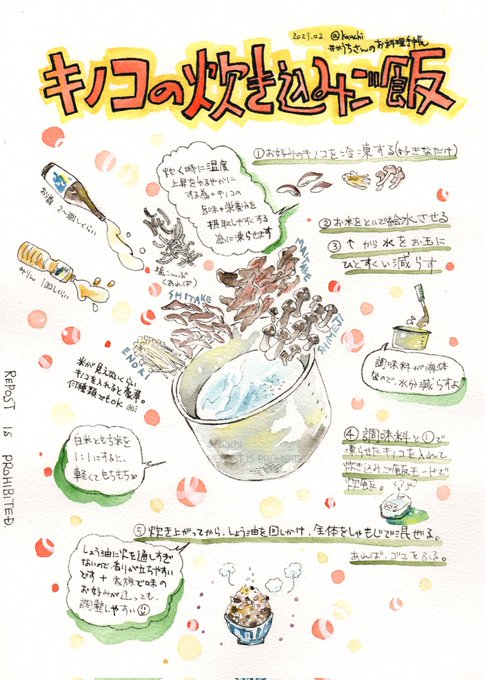 2023.02 @kauchi
#かうちさんのお料理手帳
キノコの炊き込みご飯
①お好みのキノコを冷凍する(好きなだけ)
炊く時に温度
上昇をゆるやかに
する為+キノコの
旨味+栄養分を
摂取しやすくする
為に凍らせます
お酒 2〜3回しくらい
みりん 1回しくらい
塩こんぶ
(あれば)
②お米をといで給水させる
③↑から水をお玉に
ひとすくい減らす
MAITAKE
SHITAKE
SHIMEJI
ENOKI
調味料が液体
なので、水分減らすよ
米が見えないくらい
キノコを入れると豪華。
何種類でもOK
白米ともち米を
1:1にすると、
軽くてもちもち
kauchi
REPOST IS PROHIBITED
④調味料と①で
凍らせたキノコを入れて
炊き込みご飯モードで
炊飯。
⑤炊き上がってから、しょう油を回しかけ、全体をしゃもじで混ぜる。
あれば、ゴマをふる。
しょう油に火を通しすぎ
ないので香りが立ちやすい
です+家族で味の
お好みが違っても、
調整しやすい!!
REPOST IS PROHIBITED